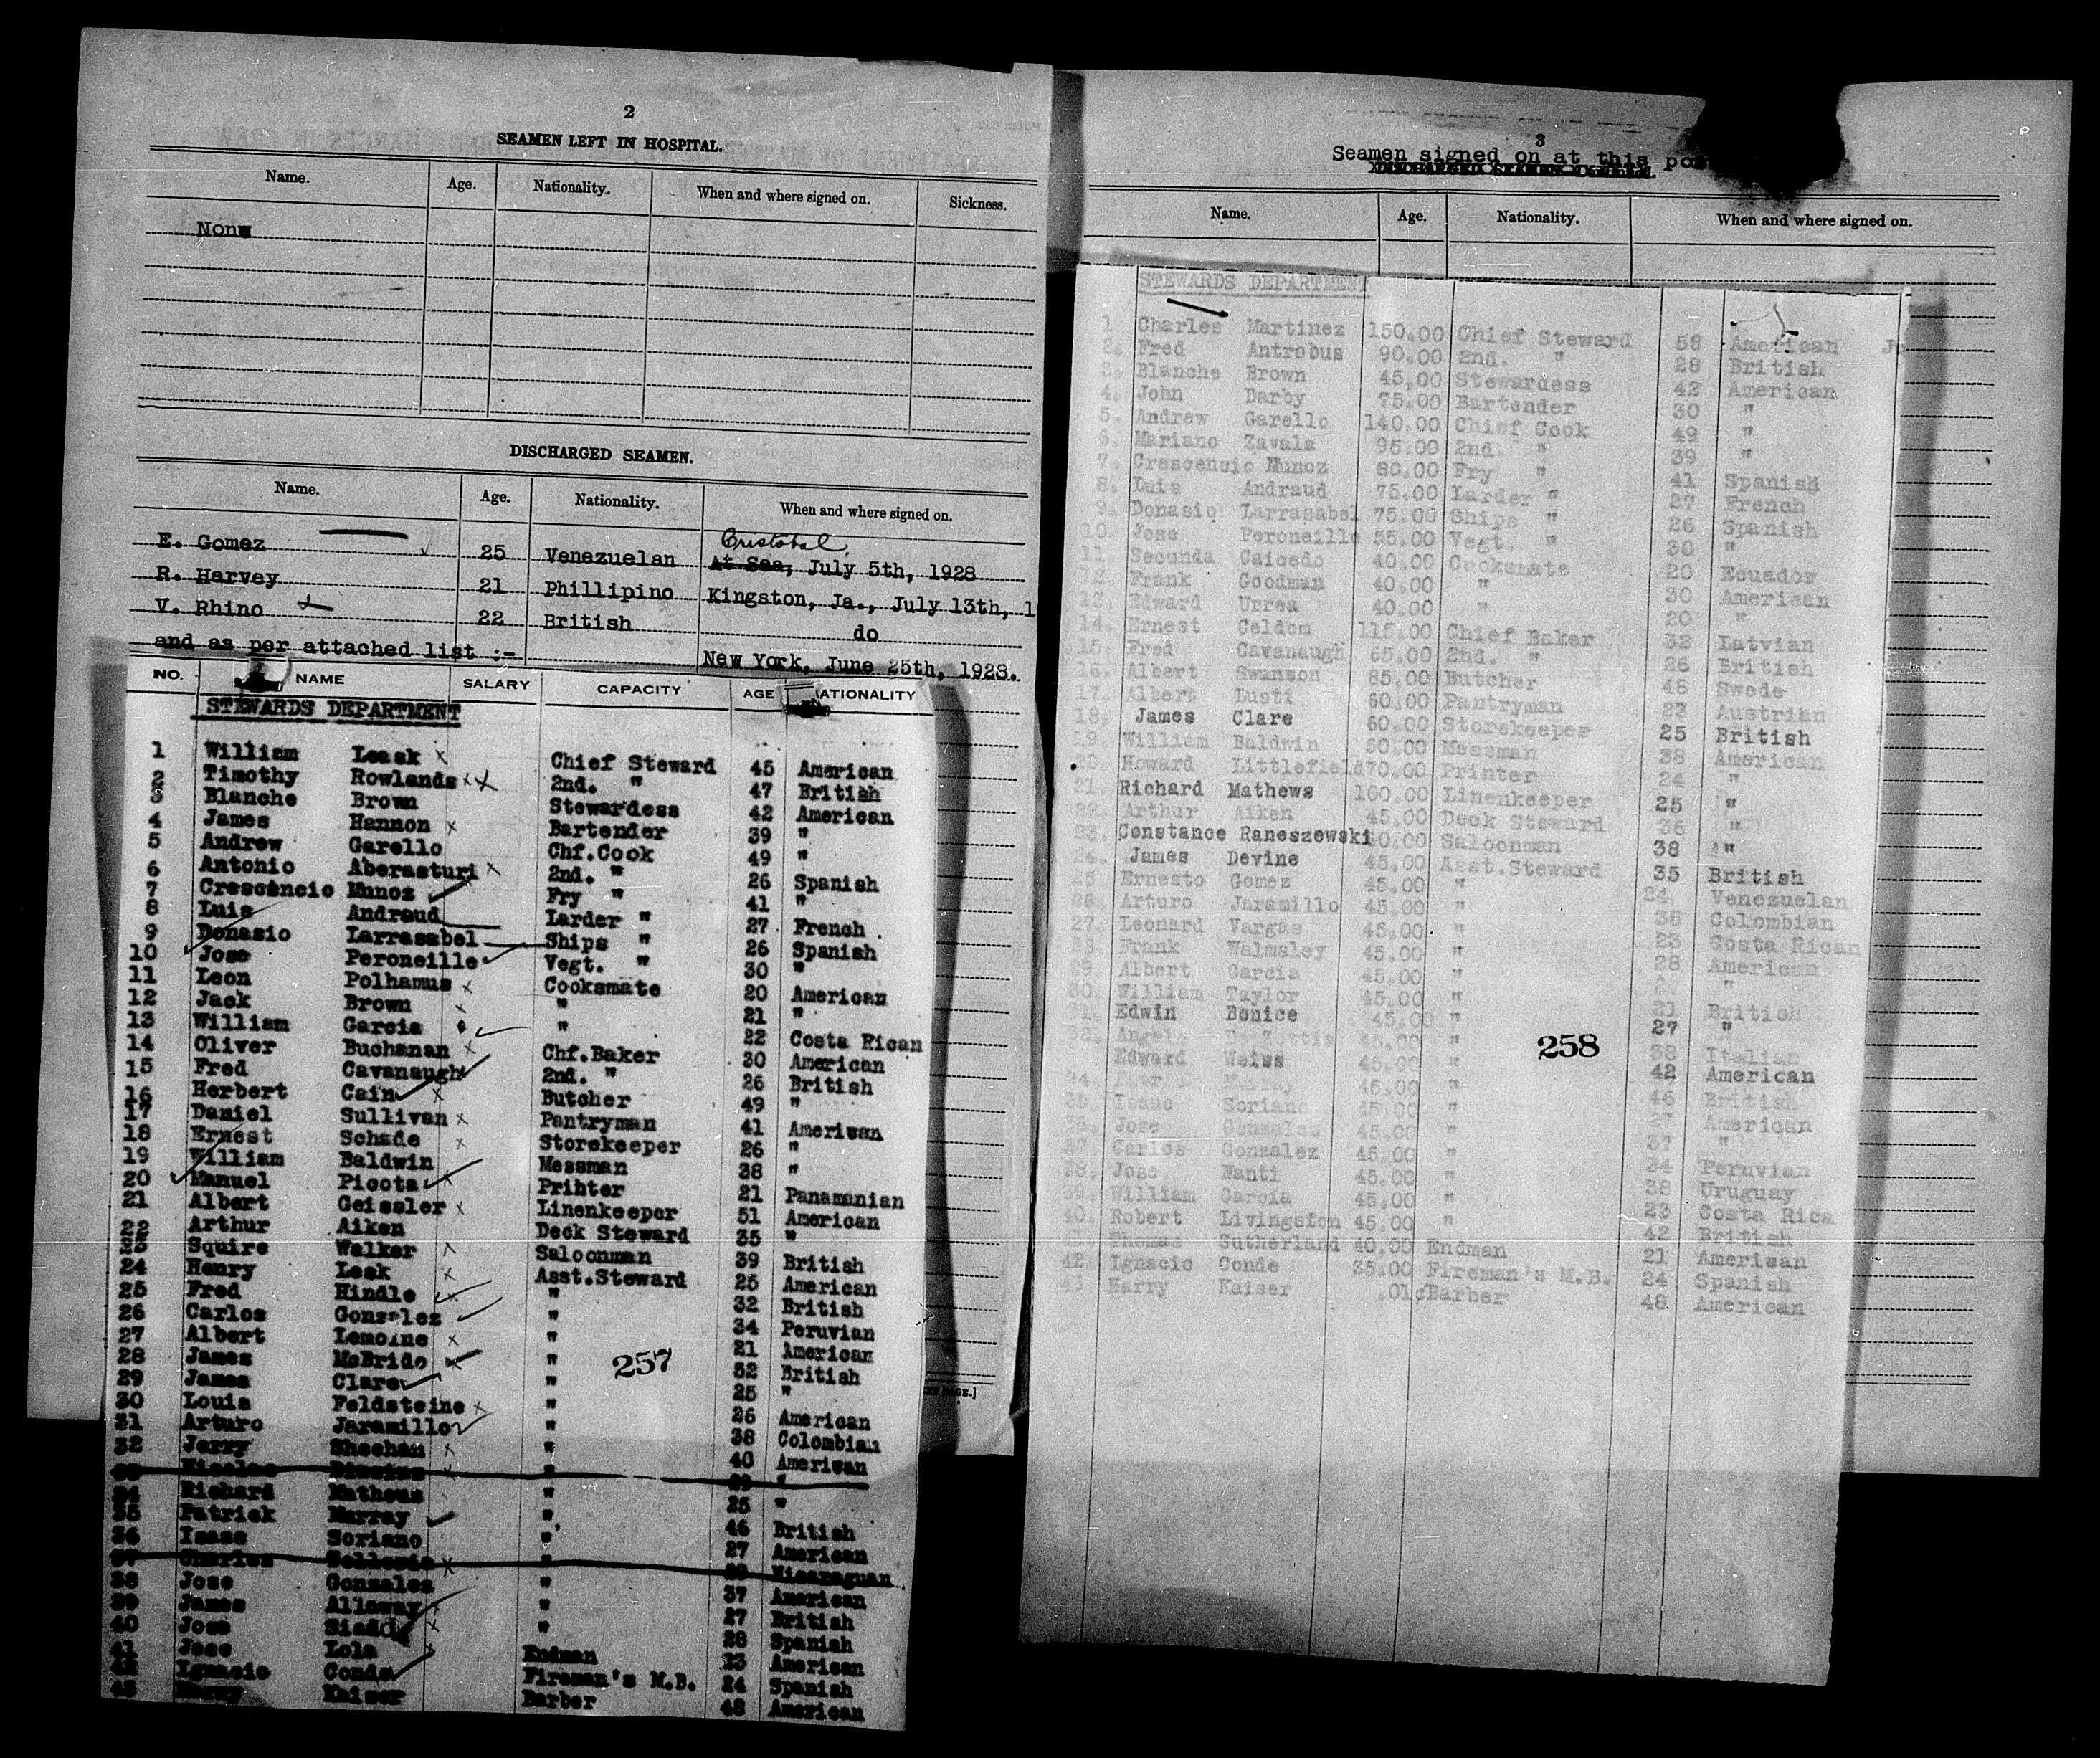 2
SEAMEN LEFT IN HOSPITAL.
Name. Age. Nationality. When and where signed on. Sickness.
None
DISCHARGED SEAMEN.
Name. Age. Nationality. When and where signed on.
Cristobal
E. Gomez 25 Venezuelan At Sea, July 5th, 1928
R. Harvey 21 Phillipino Kingston, Ja., July 13th, 1
V. Rhino 22 British do
and as per attached list :- New York, June 25th, 1928.
NO. NAME SALARY CAPACITY AGE NATIONALITY
STEWARDS DEPARTMENT
1 William Leask Chief Steward 45 American
2 Timothy Rowlands 2nd. " 47 British
3 Blanche Brown Stewardess 42 American
4 James Hannon Bartender 39 "
5 Andrew Garello Chf.Cook 49 "
6 Antonio Aberasturi 2nd. " 26 Spanish
7 Crescencio Munoz Fry " 41 "
8 Luis Andraud Larder " 27 French
9 Donasio Larrasabel Ships " 26 Spanish
10 Jose Peroneille Vegt. " 30 "
11 Leon Polhamus Cooksmate 20 American
12 Jack Brown " 21 "
13 William Garcia " 22 Costa Rican
14 Oliver Buchanan Chf.Baker 30 American
15 Fred Cavanaugh 2nd. " 26 British
16 Herbert Cain Butcher 49 "
17 Daniel Sullivan Pantryman 41 American
18 Ernest Schade Storekeeper 26 "
19 William Baldwin Messman 38 "
20 Manuel Picota Printer 21 Panamanian
21 Albert Geissler Linenkeeper 51 American
22 Arthur Aiken Deck Steward 35 "
23 Squire Walker Saloonman 39 British
24 Henry Leak Asst.Steward 25 American
25 Fred Hindle " 32 British
26 Carlos Gonzalez " 34 Peruvian
27 Albert Lemoine " 21 American
28 James McBride " 52 British
29 James Clare " 25 "
30 Louis Feldsteine " 26 American
31 Arturo Jaramillo " 38 Colombian
32 Jerry Sheehan " 40 American
34 Richard Matheus " 25 "
35 Patrick Murray " 46 British
36 Isaac Soriano " 27 American
37 Charles " Nicaraguan
38 Jose Gonzales " 37 American
39 James Allaway " 27 British
40 Jose " 28 Spanish
41 Jose Lola Endman 23 American
42 Ignacio Conde Fireman's M.B. 24 Spanish
43 Kaiser Barber 48 American
257
3
Seamen signed on at this
Name. Age. Nationality. When and where signed on.
STEWARDS DEPARTMENT
1 Charles Martinez 150.00 Chief Steward 58 American
2. Fred Antrobus 90.00 2nd. " 28 British
3. Blanche Brown 45.00 Stewardess 42 American
4. John Darby 75.00 Bartender 30 "
5. Andrew Garello 140.00 Chief Cook 49 "
6. Mariano Zavala 95.00 2nd. " 39 "
7. Crescencio Munoz 80.00 Fry " 41 Spanish
8. Luis Andraud 75.00 Larder " 27 French
9. Donasio Larrasabel 75.00 Ships " 26 Spanish
10. Jose Peroneille 55.00 Vegt. " 30 "
11. Secunda Caicedo 40.00 Cooksmate 20 Ecuador
12. Frank Goodman 40.00 " 30 American
13. Edward Urrea 40.00 " 20 "
14. Ernest Celdom 115.00 Chief Baker 32 Latvian
15. Fred Cavanaugh 65.00 2nd. " 26 British
16. Albert Swanson 85.00 Butcher 48 Swede
17. Albert Lusti 60.00 Pantryman 27 Austrian
18. James Clare 60.00 Storekeeper 25 British
19. William Baldwin 50.00 Messman 38 American
20. Howard Littlefield 70.00 Printer 24 "
21. Richard Mathews 100.00 Linenkeeper 25 "
22. Arthur Aiken 45.00 Deck Steward 36 "
23. Constance Raneszewski 50.00 Saloonman 38 "
24. James Devine 45.00 Asst.Steward 35 British
25. Ernesto Gomez 45.00 " 24 Venezuelan
26. Arturo Jaramillo 45.00 " 38 Colombian
27. Leonard Vargas 45.00 " 23 Costa Rican
28. Frank Walmsley 45.00 " 28 American
29. Albert Garcia 45.00 " "
30. William Taylor 45.00 " 21 British
31. Edwin Bonice 45.00 " 27 "
32. Angelo De Zottis 45.00 " 38 Italian
Edward Weiss 45.00 " 42 American
34. 45.00 " 46 British
35. Isaac Soriano 45.00 " 27 American
Jose Gonzales 45.00 " 37 "
37. Carlos Gonzalez 45.00 " 34 Peruvian
38. Jose Nanti 45.00 " 38 Uruguay
39. William Garcia 45.00 " 23 Costa Rica
40. Robert Livingston 45.00 " 42 British
Thomas Sutherland 40.00 Endman 21 American
42. Ignacio Conde 35.00 Fireman's M.B. 24 Spanish
43 Harry Kaiser .01¢ Barber 48 American
258